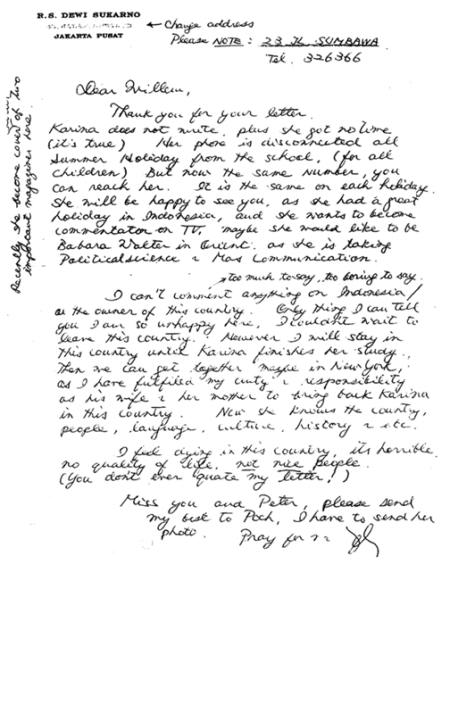 R.S. DEWI SUKARNO
JAKARTA PUSAT
← Change address
Please NOTE: 23 JL. SUMBAWA
Tel. 326366
Recently she become cover of two
important magazines here.
Dear Willem,
Thank you for your letter.
Karina does not write, plus she got no time
(it's true) Her phone is disconnected all
Summer Holiday from the school, (for all
children) But now the same number, you
can reach her. It is the same on each holiday.
She will be happy to see you, as she had a great
holiday in Indonesia, and she wants to become
commentator on TV. maybe she would like to be
Babara Walter in Orient. as she is taking
Political science & Mas Communication.
too much to say, too boring to say.
I can't comment anything on Indonesia/
or the owner of this country. Only thing I can tell
you I am so unhappy here, I couldn't wait to
leave this country. However I will stay in
this country until Karina finishes her study.
Then we can get together maybe in New York,
as I have fulfiled my duty & responsibility
as his wife & her mother to bring back Karina
in this country. Now she knows the country,
people, language, culture, history & etc.
I feel dying in this country, its horrible.
no quality of life, not nice people.
(You don't ever quate my letter!)
Miss you and Peter, please send
my best to Poch, I have to send her
photo. Pray for